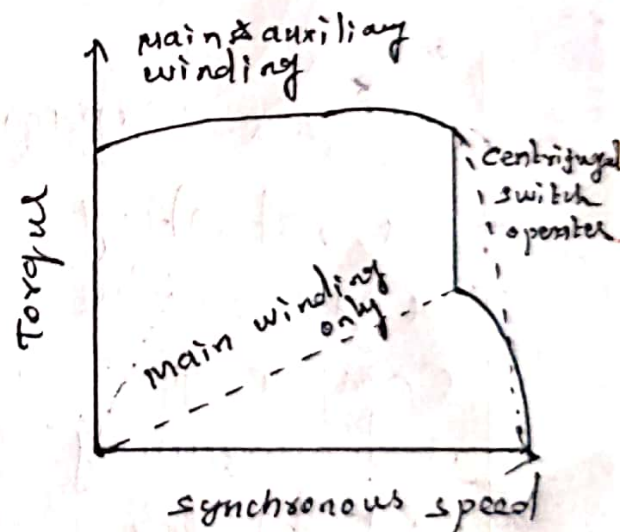 Main & auxiliary
winding
centrifugal
switch
operates
Torque
Main winding
only
synchronous speed